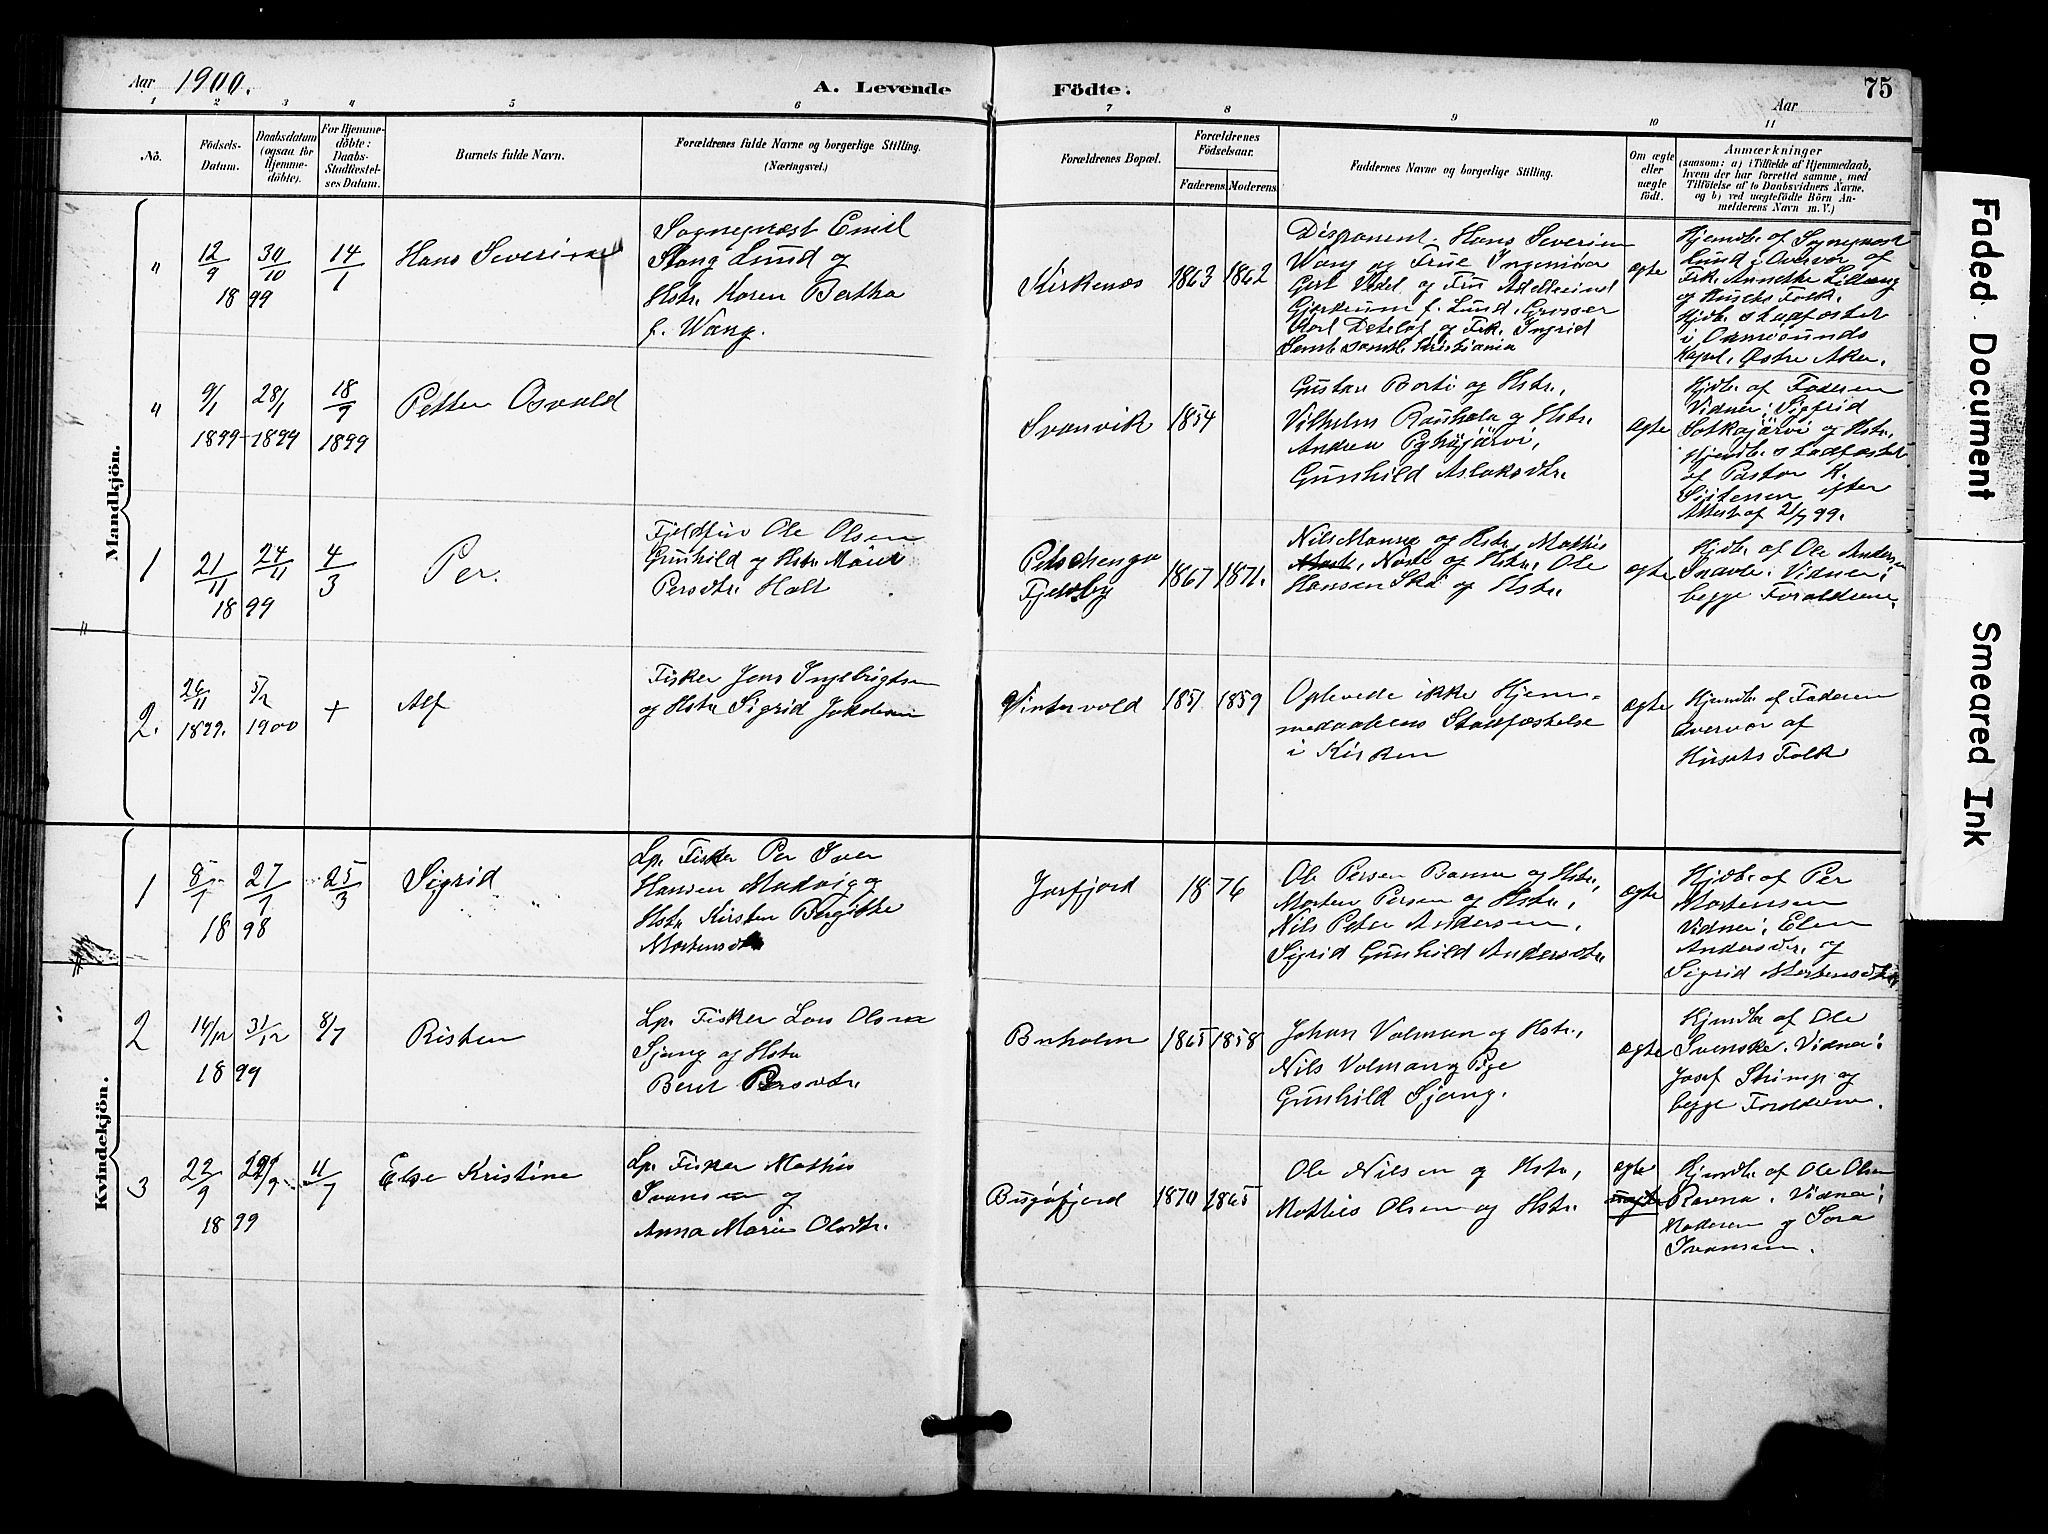 Aar 1900.
A. Levende Födte.
Aar
75
1 2 3 4 5 6 7 8 9 10 11
No.
Födsels-
Datum.
Daabsdatum
(ogsaa for
Hjemme-
döbte).
For Hjemme-
döbte:
Daabs-
Stadfæstel-
ses Datum.
Barnets fulde Navn.
Forældrenes fulde Navne og borgerlige Stilling.
(Næringsvei.)
Forældrenes Bopæl.
Forældrenes
Födselsaar.
Faderens. Moderens.
Faddernes Navne og borgerlige Stilling.
Om ægte
eller
uægte
födt.
Anmærkninger
(saasom: a) i Tilfælde af Hjemmedaab,
hvem der har forrettet samme, med
Tilföielse af to Daabsvidners Navne,
og b) ved uægtefödte Börn An-
melderens Navn m. V.)
Mandkjön.
"
12/9
30/10
14/1
18 99
Hans Severin
Sogneprest Emil
Stang Lund og
Hstr. Karen Bertha
f. Wang.
Kirkenæs
1863
1862
Disponent Hans Severin
Wang og Frue Ingeniör
Gert Vedel og Fru Adelheid
Gjerdrum f. Lund, Grosser
Karl Detelof og Frk. Ingrid
samtl. Kristiania
ægte
Hjemdbt. af Sogneprest
Lund i Overvær af
Frk. Annethe
og Husets Folk.
Hjdbt. stadfæstet
i Ormsunds
Kapel, Østre Aker.
"
9/1
28/1
18/9
1899
1899
1899
Petter Osvald
Svanvik
1854
Gustav Borti og Hstr.,
Vilhelm Rauhala og Hstr.
Andrea Pyhäjärvi,
Gunhild Aslaksdtr.
ægte
Hjdbt. af Faderen
Vidner: Sigfrid
Sotkajärvi og Hstr.
Hjemdbt. stadfæstet
af Pastor K.
efter
Attest af 21/9 99.
1
21/11
24/11
4/3
18 99
Per.
Fjeldfin Ole Olsen
Gunhild og Hstr. Marit
Persdtr. Halt
Petschenga
Fjeldby
1867
1871.
Nils Manne og Hstr. Mathis
og Hstr. Ole
Hansen Skö og Hstr.
ægte
Hjdbt. af Ole Andersen
Snavle. Vidner:
begge Forældrene.
"
2.
26/11
5/2
1899.
1900
+
Alf
Fisker Jens Ingebrigtsen
og Hstr. Sigrid Jakobsen
Vintervold
1851
1859
Oplevede ikke Hjem-
medaabens Stadfæstelse
i Kirken
ægte
Hjemdbt. af Faderen
Overvær af
Husets Folk
Kvindekjön.
1
8/1
27/1
25/3
18 98
Sigrid
Lp. Fisker Per Iver
Hansen Madvig og
Hstr. Kirsten Birgitthe
Mortensdtr.
Jarfjord
18 76
Ole Persen Banne og Hstr.,
Morten Persen og Hstr.,
Nils Peter Andersen,
Sigrid Gunhild Andersdtr.
ægte
Hjdbt. af Per
Mortensen
Vidner: Elen
Andersdtr. og
Sigrid Mortensdtr.
2
14/12
31/12
8/7
18 99
Risten
Lp. Fisker Lars Olsen
Sjang og Hstr.
Berit Persdtr.
Buholm
1865
1858
Johan Valman og Hstr.,
Nils Valman og Pige
Gunhild Sjang.
ægte
Hjemdbt. af Ole
Svenske. Vidner:
Josef Skimp og
begge Forældrene.
3
22/9
29/9
11/7
18 99
Else Kristine
Lp. Fisker Mathis
Ivansen og
Anna Marie Olsdtr.
Bugøfjord
1870
1865
Ole Nilsen og Hstr.,
Mathis Olsen og Hstr.
ægte
uægte
Hjemdbt. af Ole Olsen
Ravna. Vidner:
Moderen og Sara
Ivansen.
Faded Document
Smeared Ink